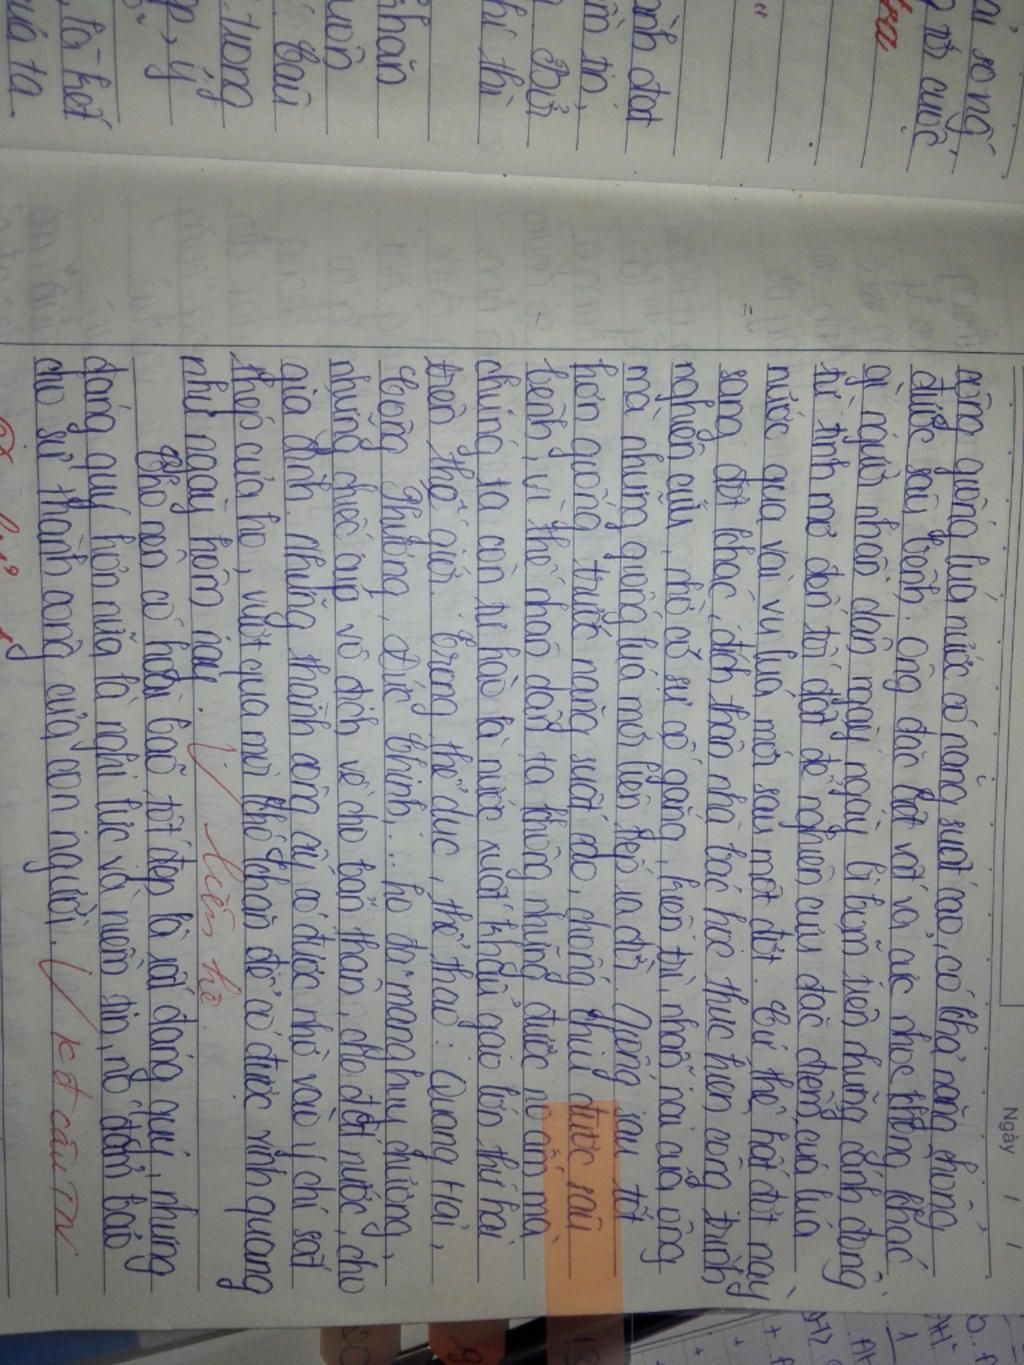 Ngày / /
rồng giống lúa nước có năng suất cao, có khả năng chống
được sâu bệnh. Ông đặc biệt vất vả, cực nhọc không khác
gì người nhân dân ngày ngày bì bõm trên những cánh đồng
từ tinh mơ đến tối đất để nghiên cứu đặc điểm của lúa
nước qua vài vụ lúa mới sau một đợt. Cứ thế, hết đợt này
sang đợt khác, đích thân nhà bác học thực hiện công trình
nghiên cứu, nhờ có sự cố gắng, kiên trì, nhẫn nại của ông
mà những giống lúa mới liên tiếp ra đời. Giống sau tốt
hơn giống trước năng suất cao, chống chịu được sâu
bệnh, vì thế nhân dân ta không những được no ấm mà
chúng ta còn tự hào là nước xuất khẩu gạo lớn thứ hai
trên thế giới. Trong thể dục, thể thao: Quang Hải,
Công Phượng, Đức Chinh,... họ đã mang huy chương,
những chiếc cúp vô địch về cho bản thân, cho đất nước, cho
gia đình. Những thành công ấy có được nhờ vào ý chí sắt
thép của họ, vượt qua mọi khó khăn để có được vinh quang
như ngày hôm nay. liên hệ.
Cho nên có hoài bão tốt đẹp là rất đáng quý, nhưng
đáng quý hơn nữa là nghị lực và niềm tin, nó đảm bảo
cho sự thành công của con người. kđ câu TN
ải sống
tra
"
ành đạt
Bởi
hí thì
khăn
Câu
trong
→ ý